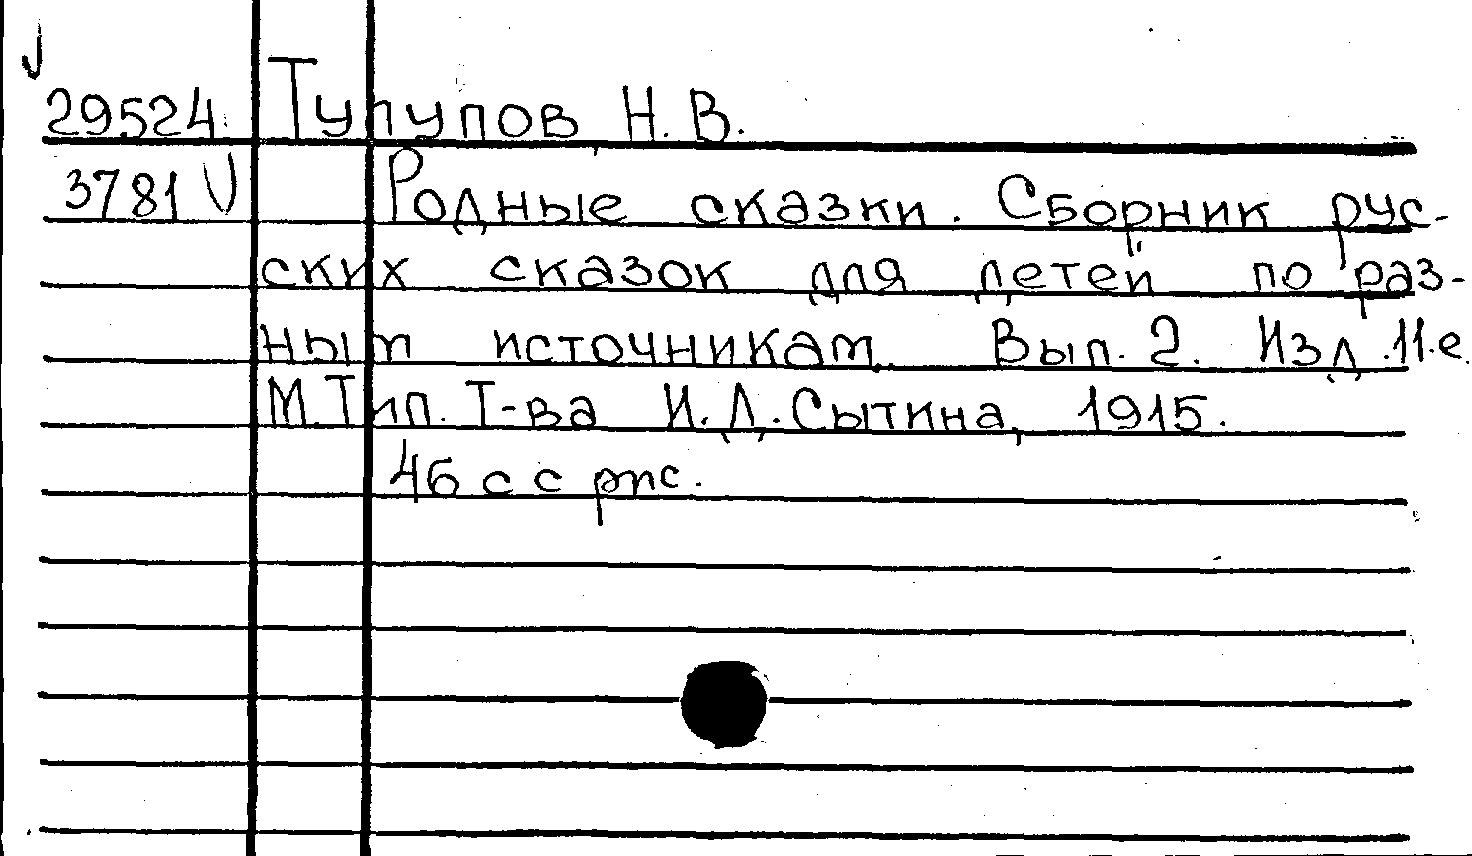 29524. Тулупов Н. В.
3781 V Родные сказки. Сборник рус-
ских сказок для детей по раз-
ным источникам. Вып. 2. Изд. 11-е.
М. Тип. Т-ва И. Д. Сытина, 1915.
46 с с рис.